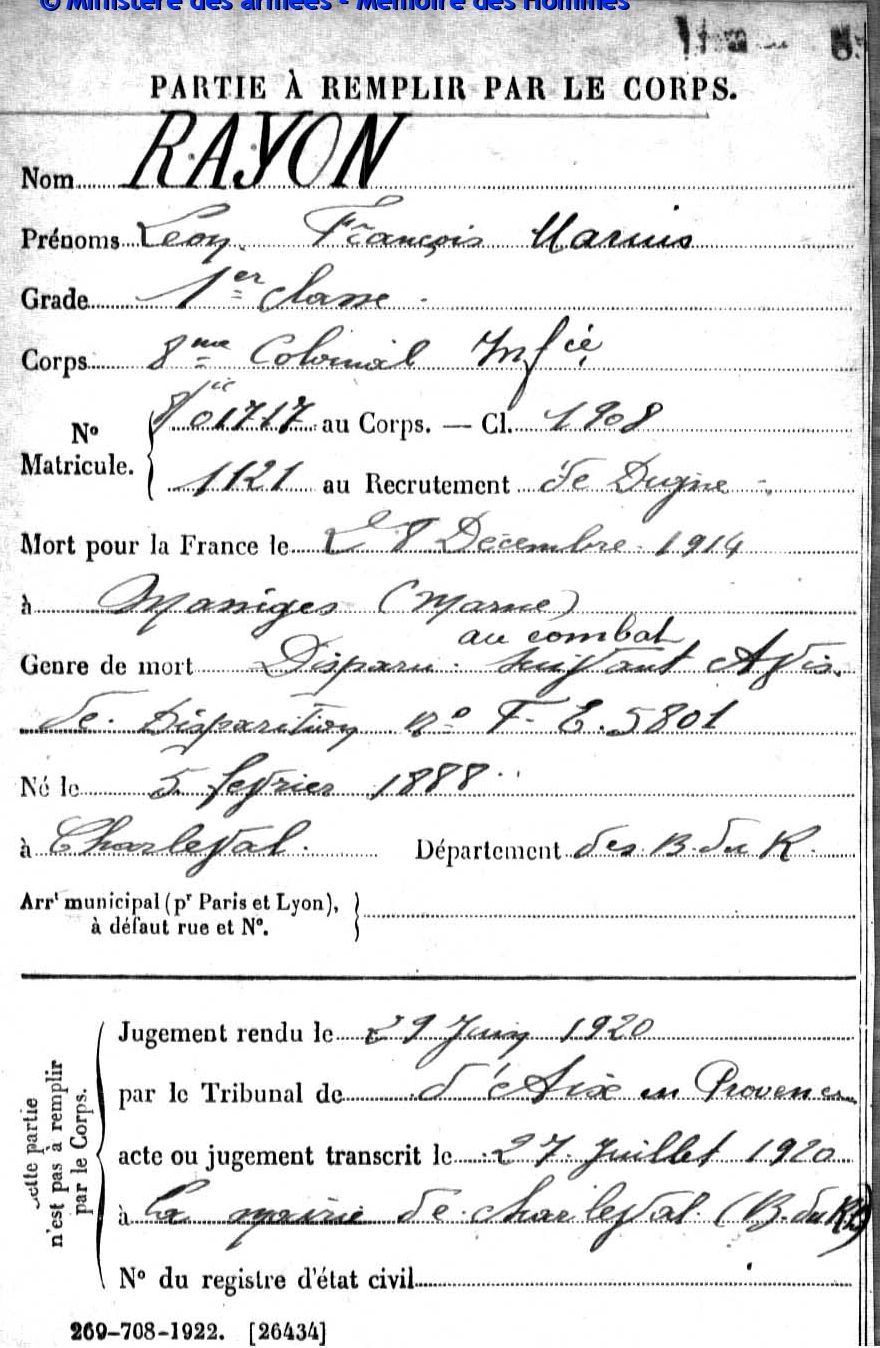 © Ministère des armées - Mémoire des Hommes
PARTIE À REMPLIR PAR LE CORPS.
Nom RAYON
Prénoms Léon François Marius
Grade 1er classe
Corps 8me Colonial Infie
No Matricule. 01717 au Corps. — Cl. 1908
1121 au Recrutement de Digne
Mort pour la France le Le 8 Décembre 1914
à Massiges (Marne)
au combat
Genre de mort Disparu suivant Avis
de Disparition no F. E. 5801
Né le 5 février 1888
à Charleval Département des B. du R.
Arrt municipal (pr Paris et Lyon),
à défaut rue et No.
Cette partie
n'est pas à remplir
par le Corps.
Jugement rendu le 29 Juin 1920
par le Tribunal de d'Aix en Provence
acte ou jugement transcrit le 27 Juillet 1920
à la mairie de Charleval (B. du Rh)
No du registre d'état civil
269-708-1922. [26434]